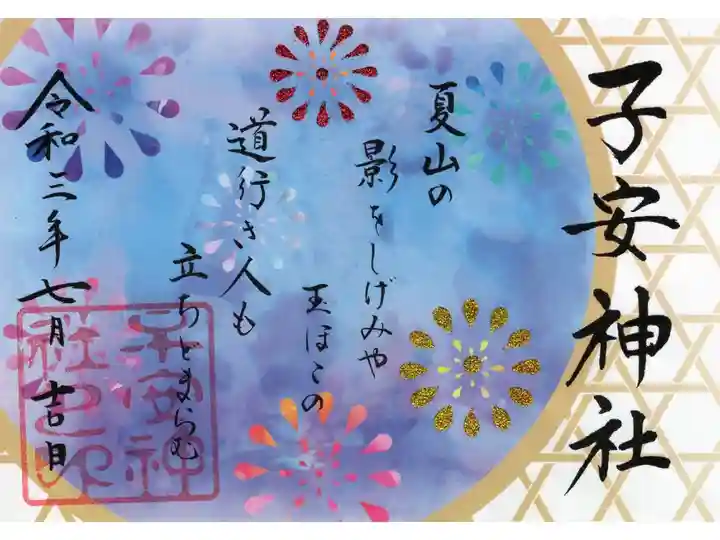 子安神社
夏山の
影をしげみや
玉ほこの
道行き人も
立ちとまらむ
令和三年七月吉日
子安神
社之印